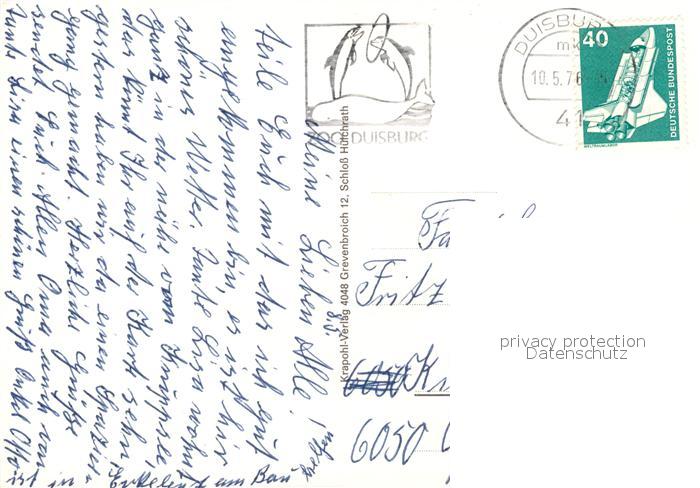 Meine Lieben Alle!
teile Euch mit das ich gut
angekommen bin, es ist hier
schönes Wetter. Tante Lisa wohnt
ganz in der nähe vom
das könnt Ihr auf der Karte sehn
gestern haben wir da einen Spazier-
gang gemacht. Herzliche Grüße
sendet Euch Allen Oma auch von
Tante Lisa einen schönen Gruß Onkel Otto
ist in Erkelenz am Bau
Krapohl-Verlag 4048 Grevenbroich 12, Schloß Hülchrath
ZOO DUISBURG
DUISBURG
mk
10.5.76
41
40
DEUTSCHE BUNDESPOST
WELTRAUMLABOR
Fritz
6050
6050
privacy protection
Datenschutz